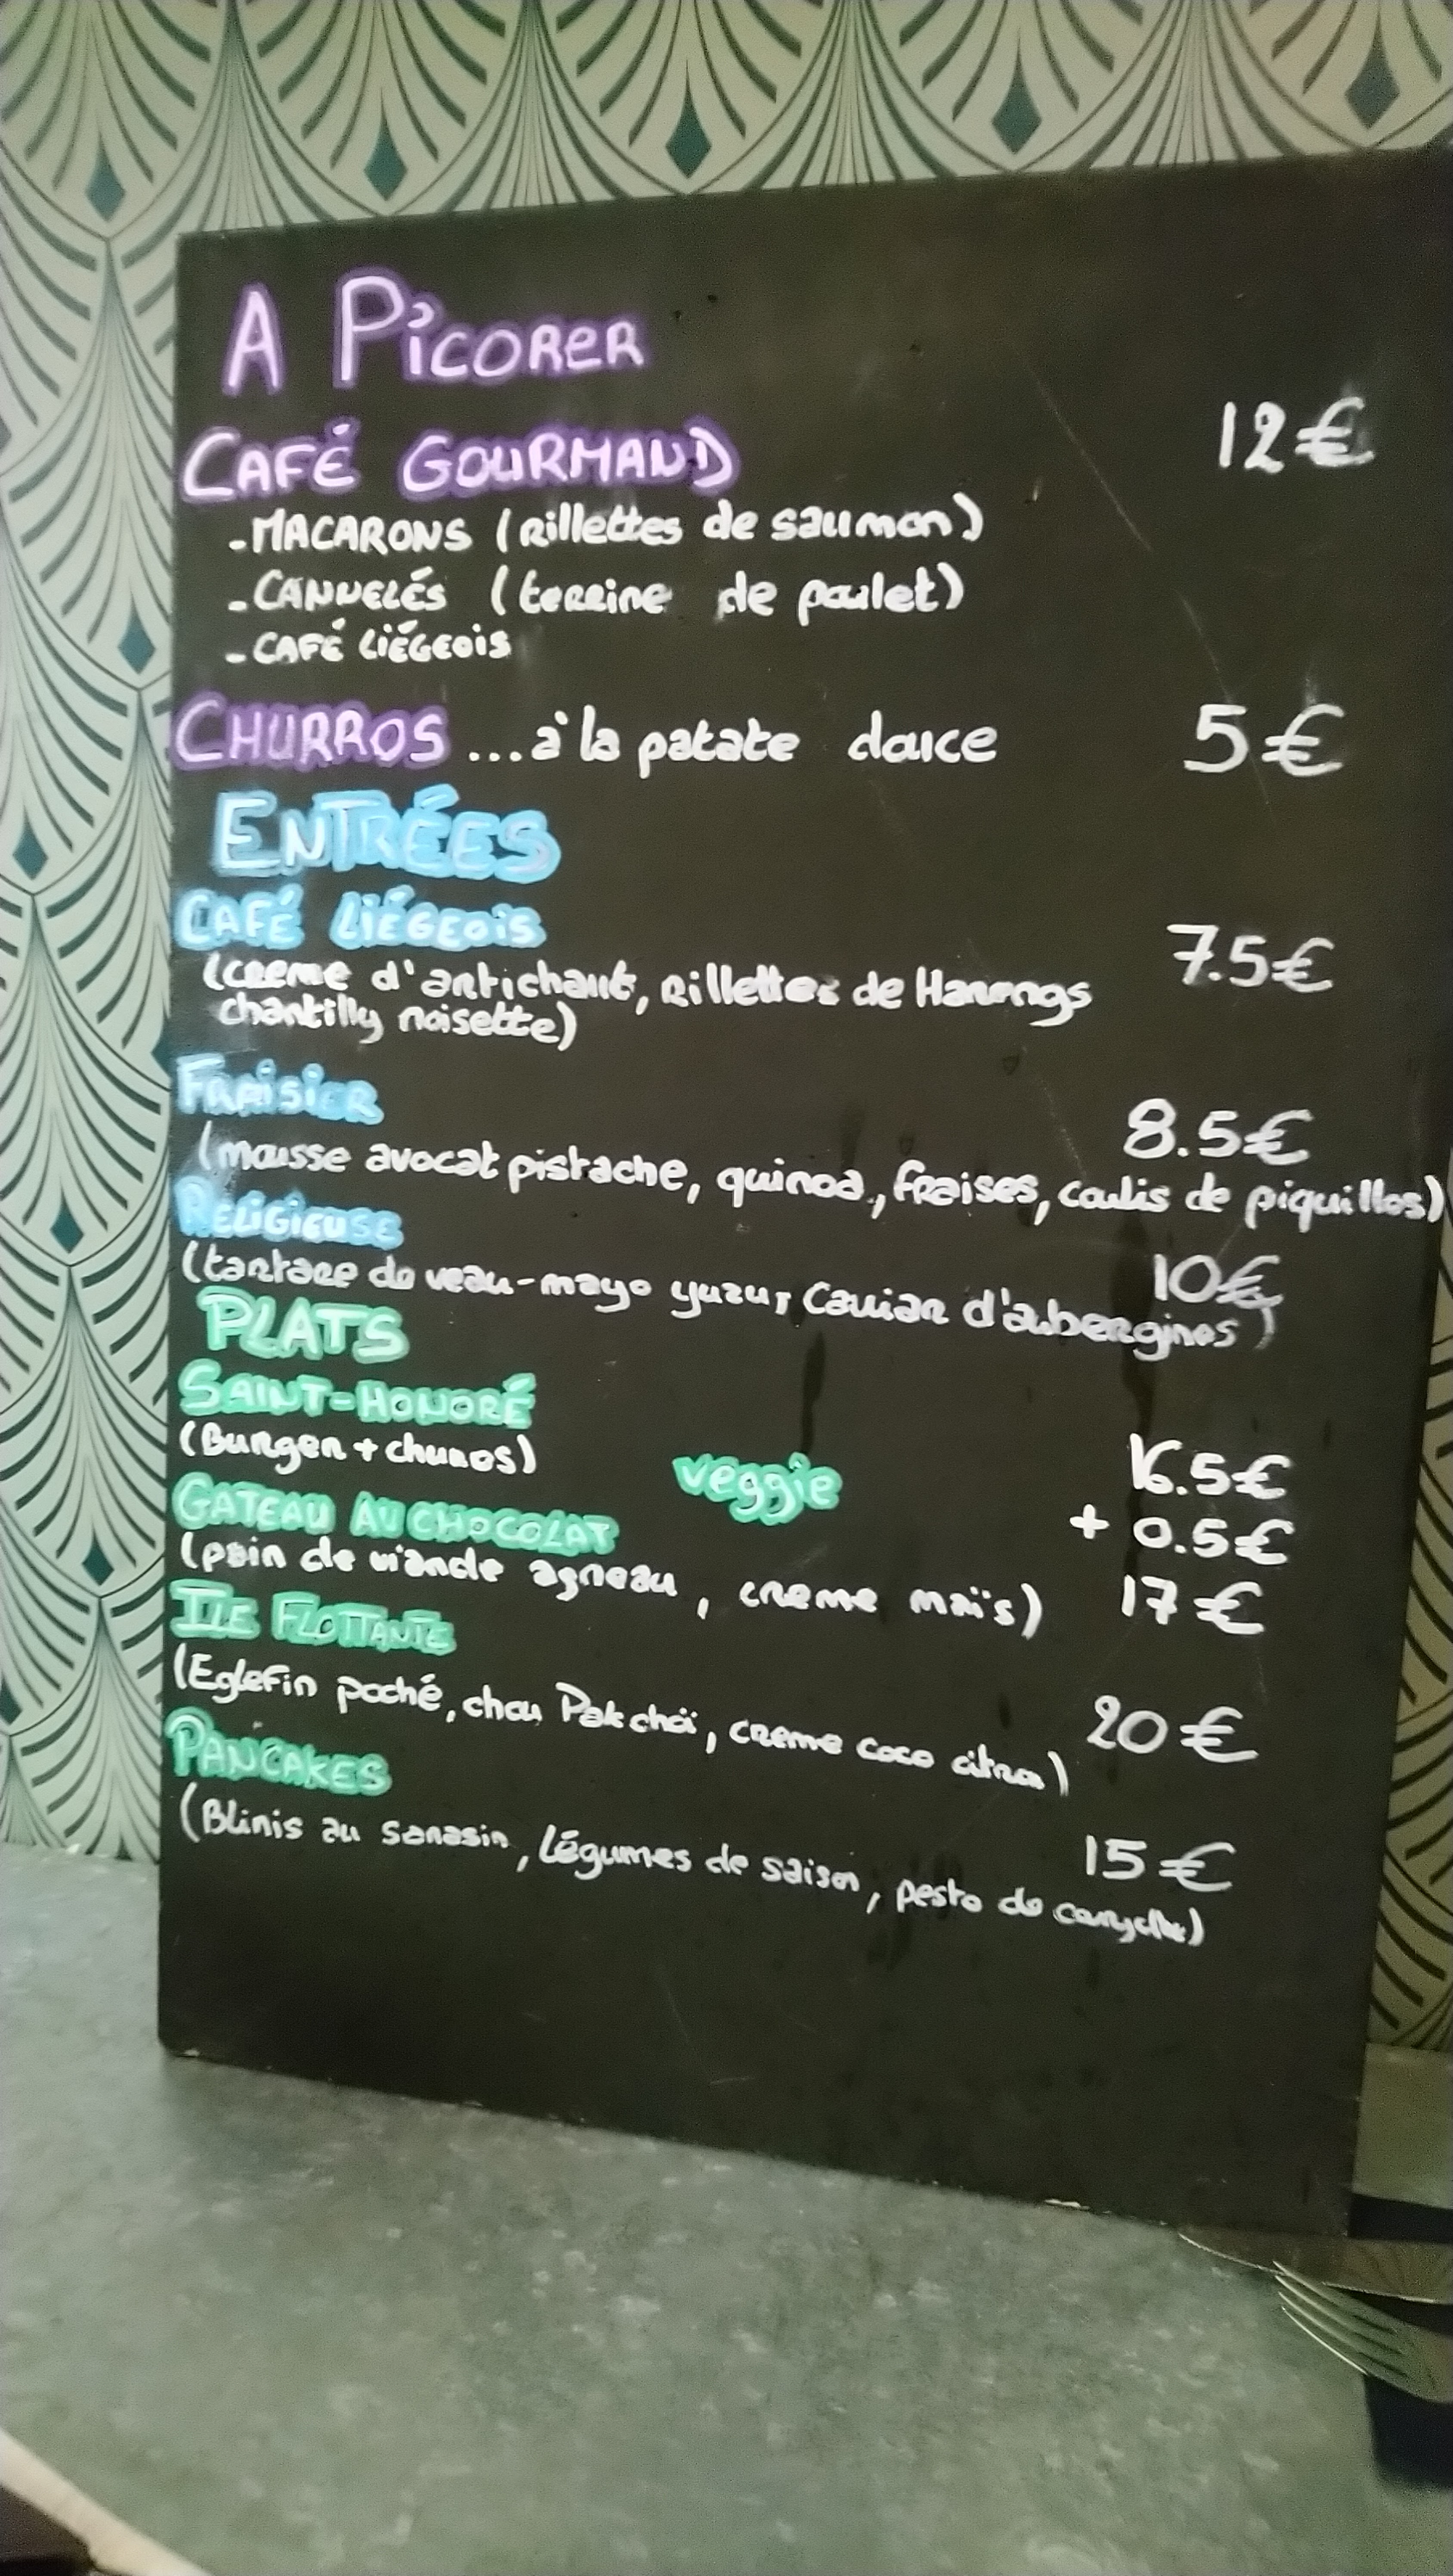 A Picorer
CAFÉ GOURMAND 12€
- MACARONS (Rillettes de saumon)
- CANNELÉS (terrine de poulet)
- CAFÉ LIÉGEOIS
CHURROS ... à la patate douce 5€
ENTRÉES
CAFÉ LIÉGEOIS 7.5€
(creme d'artichaut, Rillettes de Harengs
chantilly noisette)
FRAISIER 8.5€
(mousse avocat pistache, quinoa, fraises, coulis de piquillos)
RELIGIEUSE 10€
(tartare de veau-mayo yuzu, Caviar d'aubergines)
PLATS
SAINT-HONORÉ
(Burger + churros) veggie 16.5€
+ 0.5€
GATEAU AU CHOCOLAT
(pain de viande agneau, creme maïs) 17€
ILE FLOTTANTE
(Eglefin poché, chou Pakchoï, creme coco citron) 20€
PANCAKES
(Blinis au sarrasin, légumes de saison, pesto de 15€